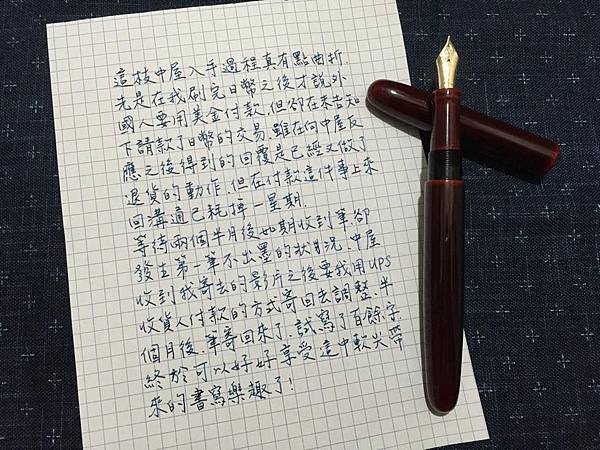 這枝中屋入手過程真有點曲折.
先是在我刷完日幣之後才說外
國人要用美金付款,但卻在未告知
下請款了日幣的交易.雖在向中屋反
應之後得到的回覆是已經又做了
退貨的動作,但在付款這件事上來
回溝通已耗掉一星期.
等待兩個半月後如期收到筆,卻
發生第一筆不出墨的狀況.中屋
收到我寄去的影片之後要我用UPS
收貨人付款的方式寄回去調整.半
個月後,筆寄回來了.試寫了百餘字
終於可以好好享受這中軟尖帶
來的書寫樂趣了!